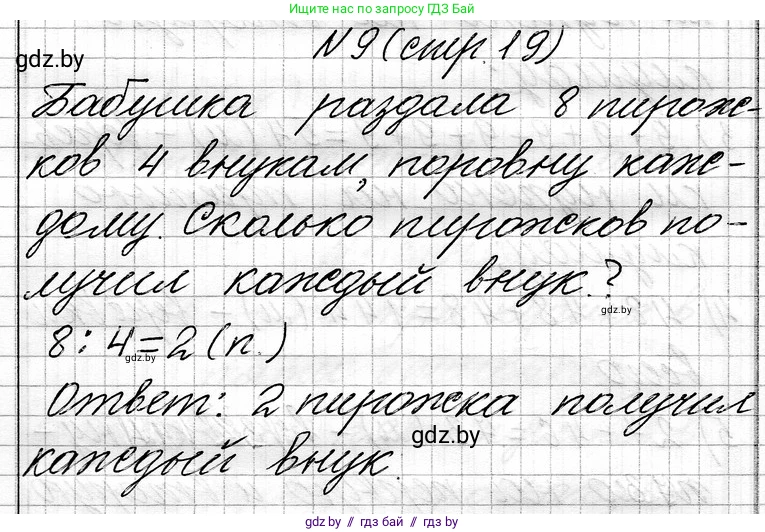 Ищите нас по запросу ГДЗ Бай
gdz.by
N 9 (стр. 19)
Бабушка раздала 8 пирож-
ков 4 внукам, поровну каж-
дому. Сколько пирожков по-
лучил каждый внук?
gdz.by
8 : 4 = 2 (п.)
gdz.by
Ответ: 2 пирожка получил
gdz.by
каждый внук.
gdz.by // гдз бай // gdz by